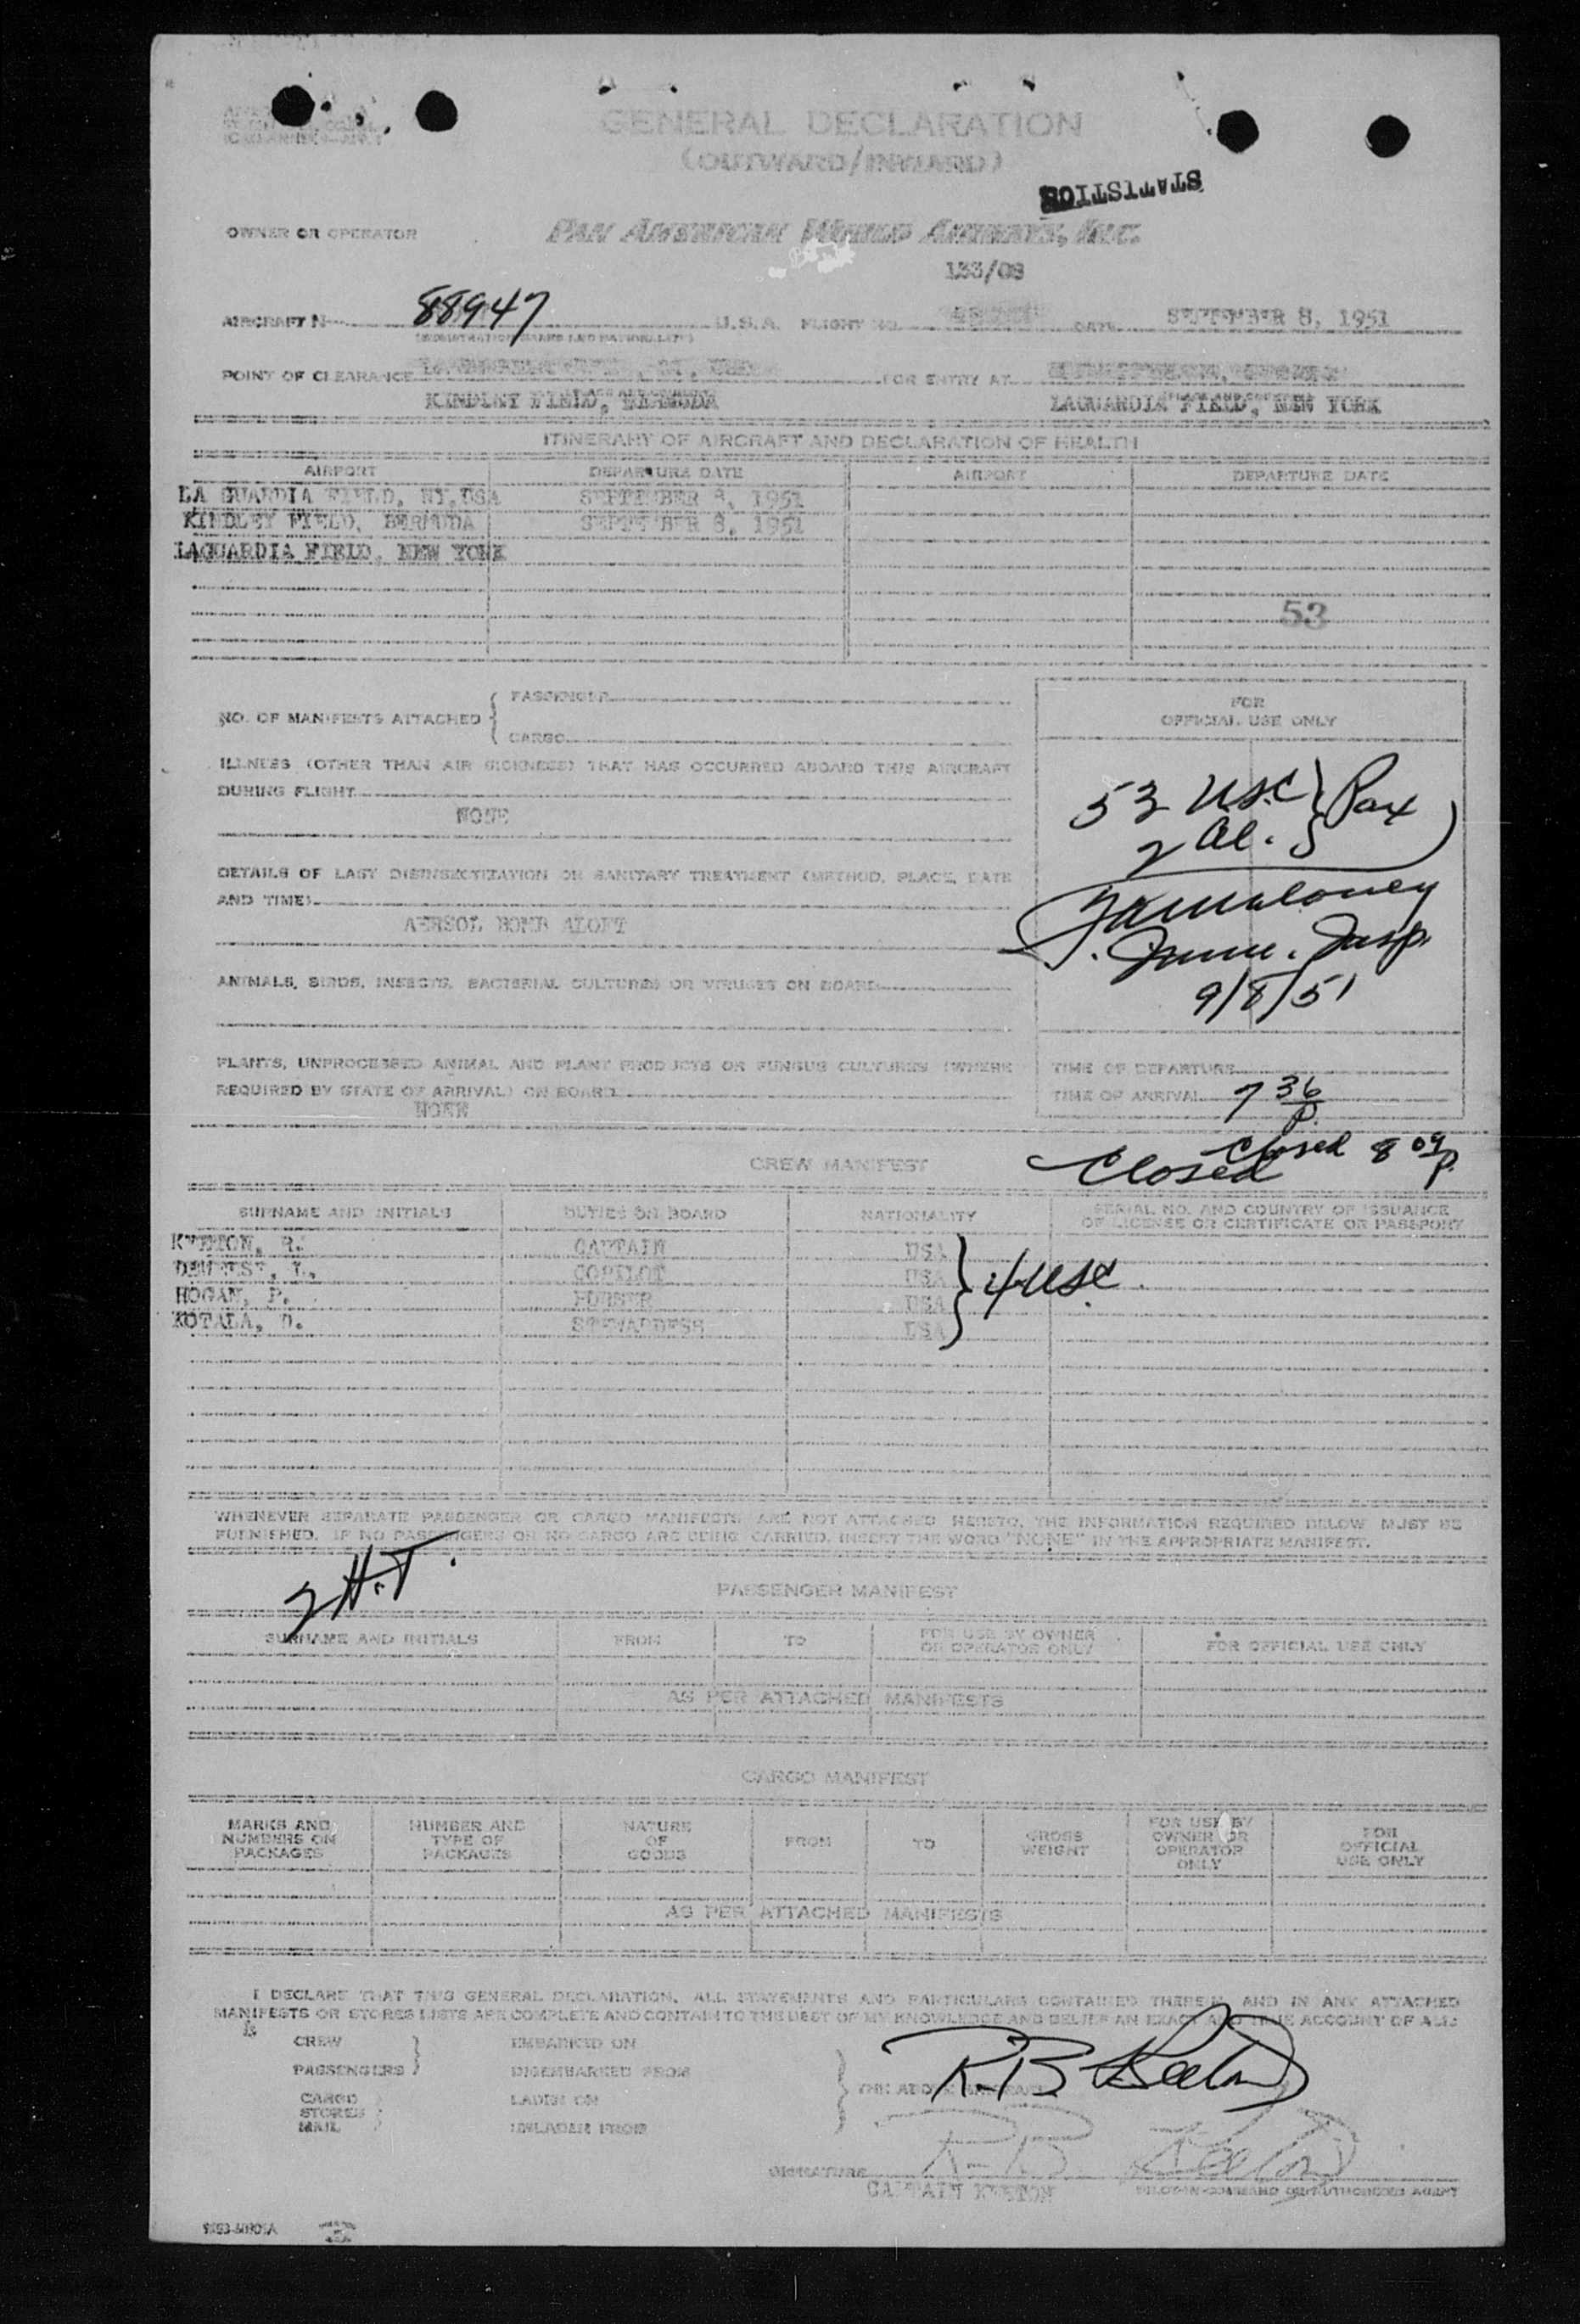 GENERAL DECLARATION
(OUTWARD/INWARD)
STATISTICS
OWNER OR OPERATOR PAN AMERICAN WORLD AIRWAYS, INC.
133/08
AIRCRAFT N 88947 U.S.A. FLIGHT NO. DATE SEPTEMBER 8, 1951
(REGISTRATION MARKS AND NATIONALITY)
POINT OF CLEARANCE FOR ENTRY AT
KINDLEY FIELD, BERMUDA LAGUARDIA FIELD, NEW YORK
ITINERARY OF AIRCRAFT AND DECLARATION OF HEALTH
AIRPORT DEPARTURE DATE AIRPORT DEPARTURE DATE
LA GUARDIA FIELD, NY, USA SEPTEMBER 8, 1951
KINDLEY FIELD, BERMUDA SEPTEMBER 8, 1951
LAGUARDIA FIELD, NEW YORK
53
NO. OF MANIFESTS ATTACHED { PASSENGER
CARGO
FOR
OFFICIAL USE ONLY
ILLNESS (OTHER THAN AIR SICKNESS) THAT HAS OCCURRED ABOARD THIS AIRCRAFT
DURING FLIGHT
NONE
53 USC } Pax
2 Al.
DETAILS OF LAST DISINSECTIZATION OR SANITARY TREATMENT (METHOD, PLACE, DATE
AND TIME)
AERSOL BOMB ALOFT
Maloney
Imm. Insp.
9/8/51
ANIMALS, BIRDS, INSECTS, BACTERIAL CULTURES OR VIRUSES ON BOARD
PLANTS, UNPROCESSED ANIMAL AND PLANT PRODUCTS OR FUNGUS CULTURES (WHERE
REQUIRED BY STATE OF ARRIVAL) ON BOARD
TIME OF DEPARTURE
TIME OF ARRIVAL 7 36 P.
Closed 8 04 P.
Closed
CREW MANIFEST
SURNAME AND INITIALS DUTIES ON BOARD NATIONALITY SERIAL NO. AND COUNTRY OF ISSUANCE
OF LICENSE OR CERTIFICATE OR PASSPORT
KEETON, R. CAPTAIN USA
COPILOT USA
HOGAN, P. PURSER USA
KOTALA, D. STEWARDESS USA
} 4 USC
WHENEVER SEPARATE PASSENGER OR CARGO MANIFESTS ARE NOT ATTACHED HERETO, THE INFORMATION REQUIRED BELOW MUST BE
FURNISHED. IF NO PASSENGERS OR NO CARGO ARE BEING CARRIED, INSERT THE WORD "NONE" IN THE APPROPRIATE MANIFEST.
2 H.T.
PASSENGER MANIFEST
SURNAME AND INITIALS FROM TO FOR USE BY OWNER
OR OPERATOR ONLY FOR OFFICIAL USE ONLY
AS PER ATTACHED MANIFESTS
CARGO MANIFEST
MARKS AND
NUMBERS ON
PACKAGES
NUMBER AND
TYPE OF
PACKAGES
NATURE
OF
GOODS
FROM
TO
GROSS
WEIGHT
FOR USE BY
OWNER OR
OPERATOR
ONLY
FOR
OFFICIAL
USE ONLY
AS PER ATTACHED MANIFESTS
I DECLARE THAT THIS GENERAL DECLARATION, ALL STATEMENTS AND PARTICULARS CONTAINED THEREIN, AND IN ANY ATTACHED
MANIFESTS OR STORES LISTS ARE COMPLETE AND CONTAIN TO THE BEST OF MY KNOWLEDGE AND BELIEF AN EXACT AND TRUE ACCOUNT OF ALL:
CREW EMBARKED ON
PASSENGERS DISEMBARKED FROM
THE ABOVE AIRCRAFT.
CARGO LADEN ON
STORES
MAIL UNLADEN FROM
R.B. Keeton
R.B. Keeton
SIGNATURE
CAPTAIN KEETON
PILOT-IN-COMMAND OR AUTHORIZED AGENT